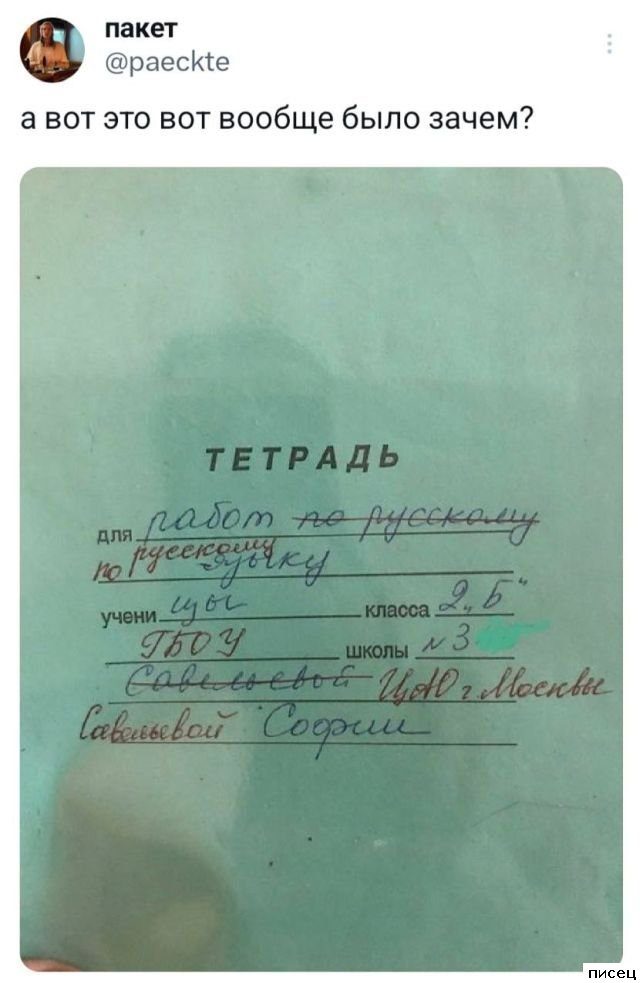 пакет
@paeckte
а вот это вот вообще было зачем?
ТЕТРАДЬ
для работ по русскому
по русскому языку
учени цы класса 2 „Б"
ГБОУ школы №3
Савельевой ЦАО г. Москвы
Савельевой Софии
писец